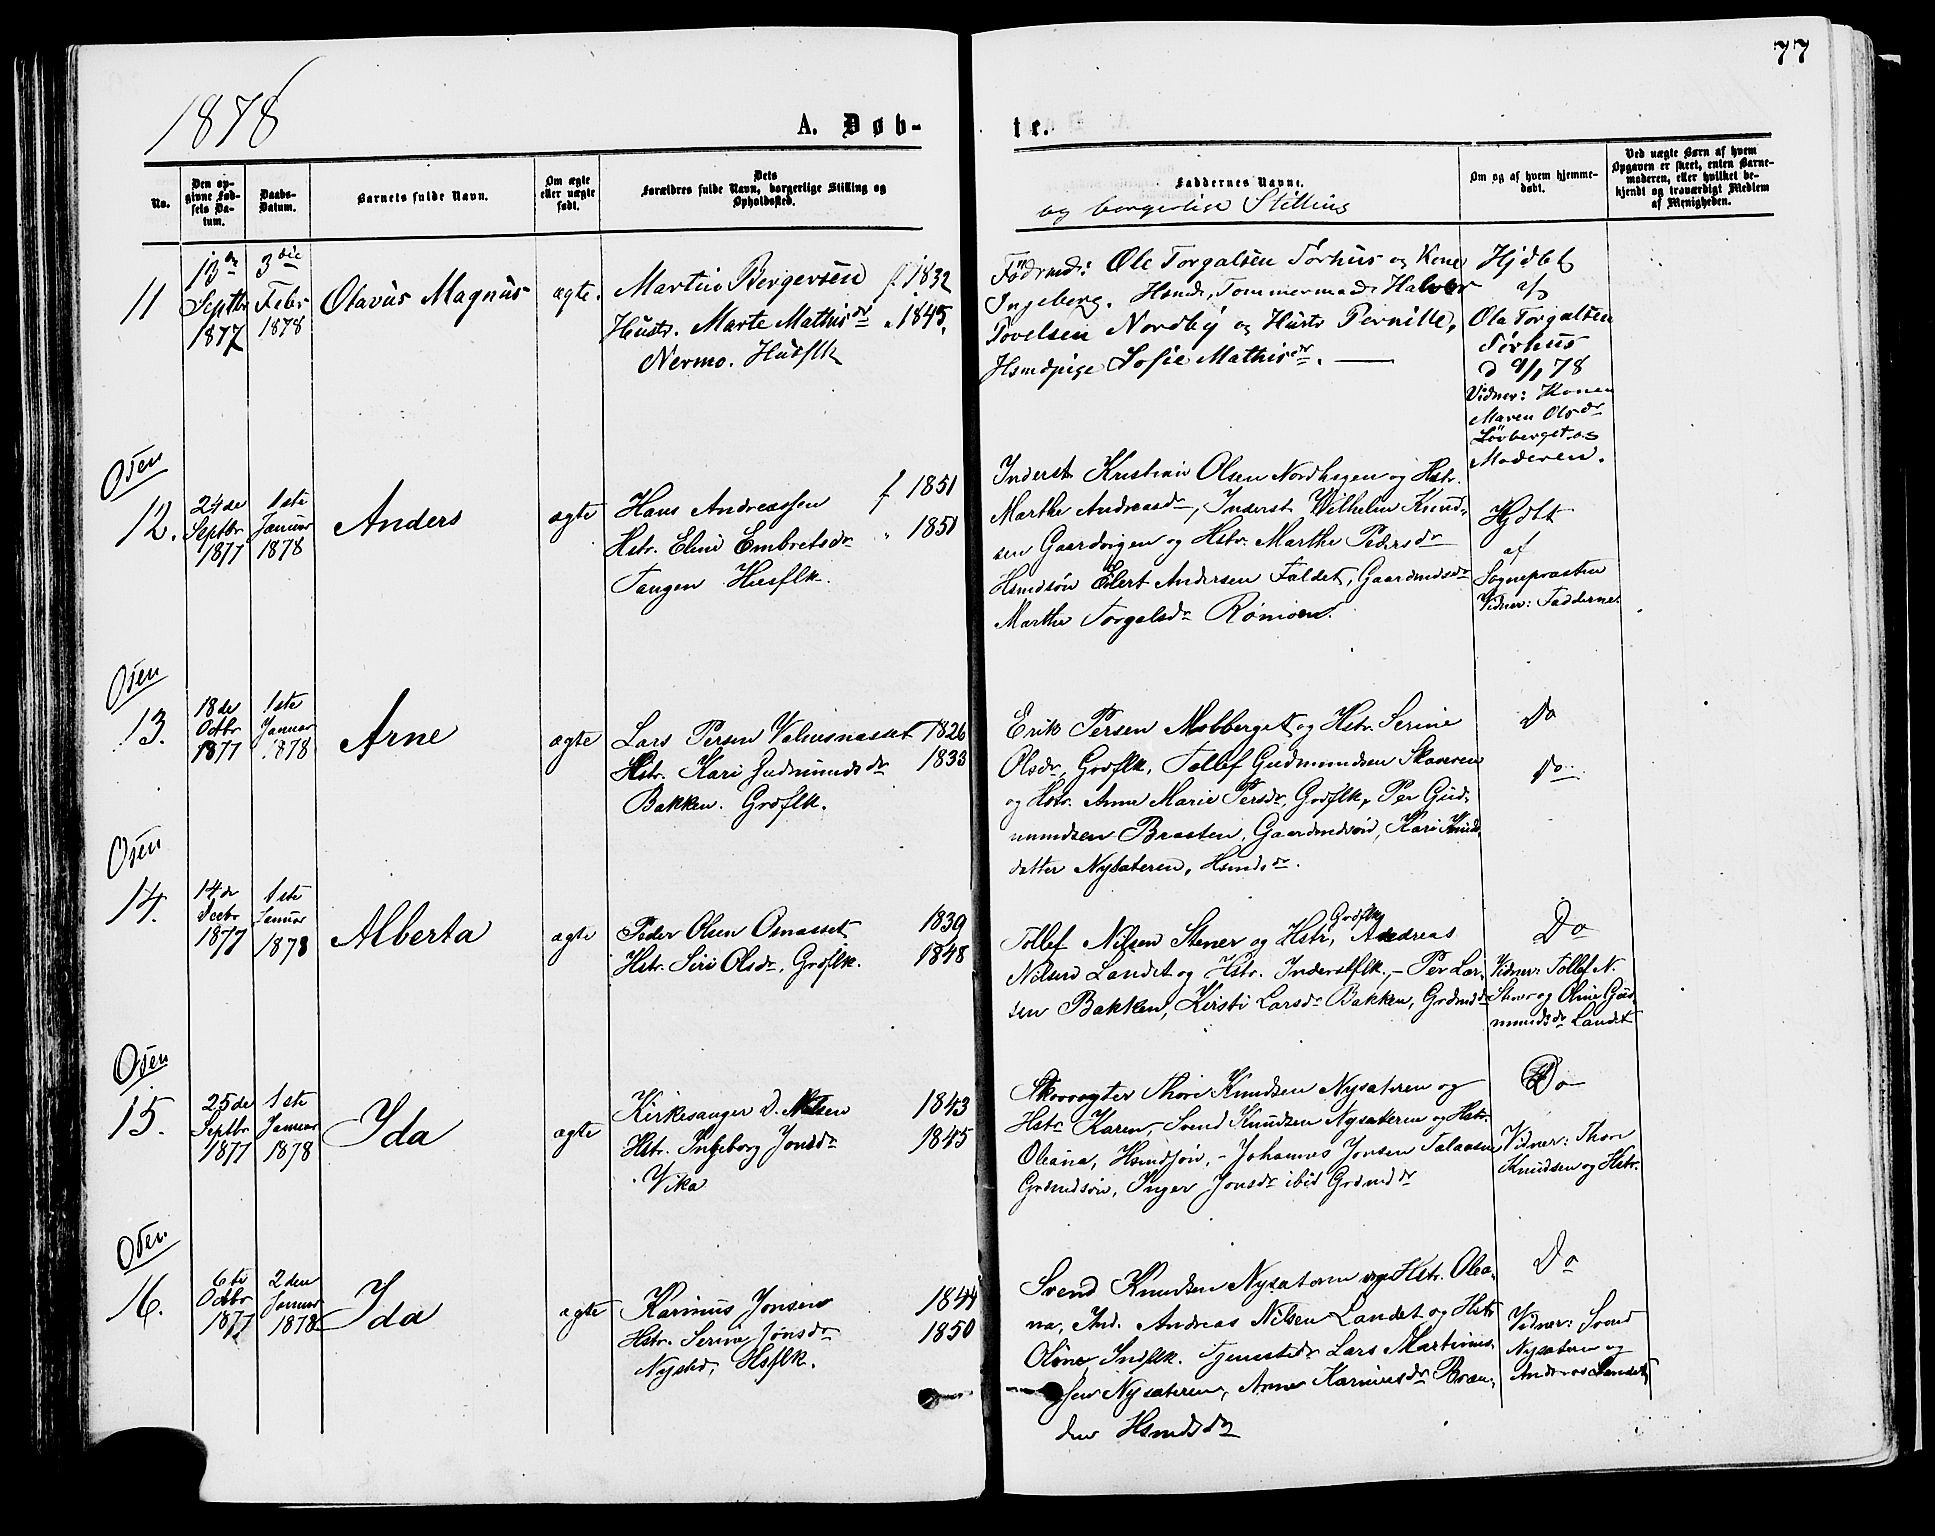 77
1878
A. Døb-
te.
No.
Den op-
givne Fød-
sels Da-
tum.
Daabs-
Datum.
Barnets fulde Navn.
Om ægte
eller uægte
født.
Dets
Forældres fulde Navn, borgerlige Stilling og
Opholdssted.
Faddernes Navne.
og borgerlige Stilling
Om og af hvem hjemme-
døbt.
Ved uægte Børn af hvem
Opgaven er skeet, enten Barne-
moderen, eller hvilket be-
kjendt og troværdigt Medlem
af Menigheden.
11
13de
Septbr
1877
3die
Febr
1878
Olavus Magnus
ægte.
Martin Bergersen f 1832
Hustr. Marte Mathisdr " 1845,
Nermo. Husflk
Födrmd: Ole Torgalsen Törhus og Kone
Ingeborg. Hsmd, Tommermand Halvor
Tovelsen Nordby og Hustr Pernille,
Hsmdpige Sofie Mathisdr.
Hjdbt
af
Ola Torgalsen
Törhus
d 9/1 78
Vidner: Konen
Maren Olsdr
Lövberget og
Moderen.
Osen
12.
24de
Septbr
1877
1ste
Januar
1878
Anders
ægte
Hans Andreassen f 1851
Hstr. Eline Embretsdr " 1851
Tangen Husflk.
Inderst Kristian Olsen Nordhagen og Hstr.
Marthe Andreasdr, Inderst Wilhelm Knud-
sen Gaardvigen og Hstr. Marthe Pedersdr
Hsmdsön Eilert Andersen Faldet, Gaardmdsdr
Marthe Torgalsdr Römoen.
Hjdbt
af
Sognepræsten
Vidner: Fadderne.
Osen
13.
18de
Octbr
1877
1ste
Januar
1878
Arne
ægte
Lars Persen Valmsnæsset 1826
Hstr. Kari Gudmundsdr 1833
Bakken. Grdflk.
Erik Persen Mobberget og Hstr. Serine
Olsdr, Grdflk, Tollef Gudmundsen Skaaren
og Hstr. Anne Marie Persdr, Grdflk, Per Gud-
mundsen Braaten, Gaardmdsön, Kari Knuds-
datter Nysæteren, Hsmdsdr.
Do
Do
Osen
14.
14de
Decbr
1877
1ste
Januar
1878
Alberta
ægte
Peder Olsen Osnæsset 1839
Hstr. Siri Olsdr, Grdflk. 1848
Grdflk
Tollef Nilsen Stener og Hstr, Andreas
Nilsen Landet og Hstr. Inderstflk, - Per Lar-
sen Bakken, Kirsti Larsdr Bakken, Grdmdsdr
Do
Vidner: Tollef N.
Stener og Oline Gud-
mundsdr Landet
Osen
15.
25de
Septbr
1877
1ste
Januar
1878
Ida
ægte
Kirkesanger D. Nilsen 1843
Hstr. Ingeborg Jonsdr 1845
Vika
Skovvogter Thore Knudsen Nysæteren og
Hstr Karen, Svend Knudsen Nysæteren og Hstr.
Oleana, Hsmdsön, - Johannes Jonsen Talaasen
Grdmdsön, Inger Jonsdr ibid Grdmddr
Do
Vidner: Thore
Knudsen og Hstr.
Osen
16.
6te
Octbr
1877
2den
Januar
1878
Ida
ægte
Karinus Jonsen 1844
Hstr. Serine Jonsdr 1850
Nysted, Hsflk.
Svend Knudsen Nysæteren og Hstr. Olea-
na, Ind. Andreas Nilsen Landet og Hstr
Oline, Indflk. Tjenestedr Lars Martinus-
sen Nysæteren, Anne Karinusdr Bræn-
den Hsmdsdr
Do
Vidner: Svend
Nysæteren og
Andreas Landet